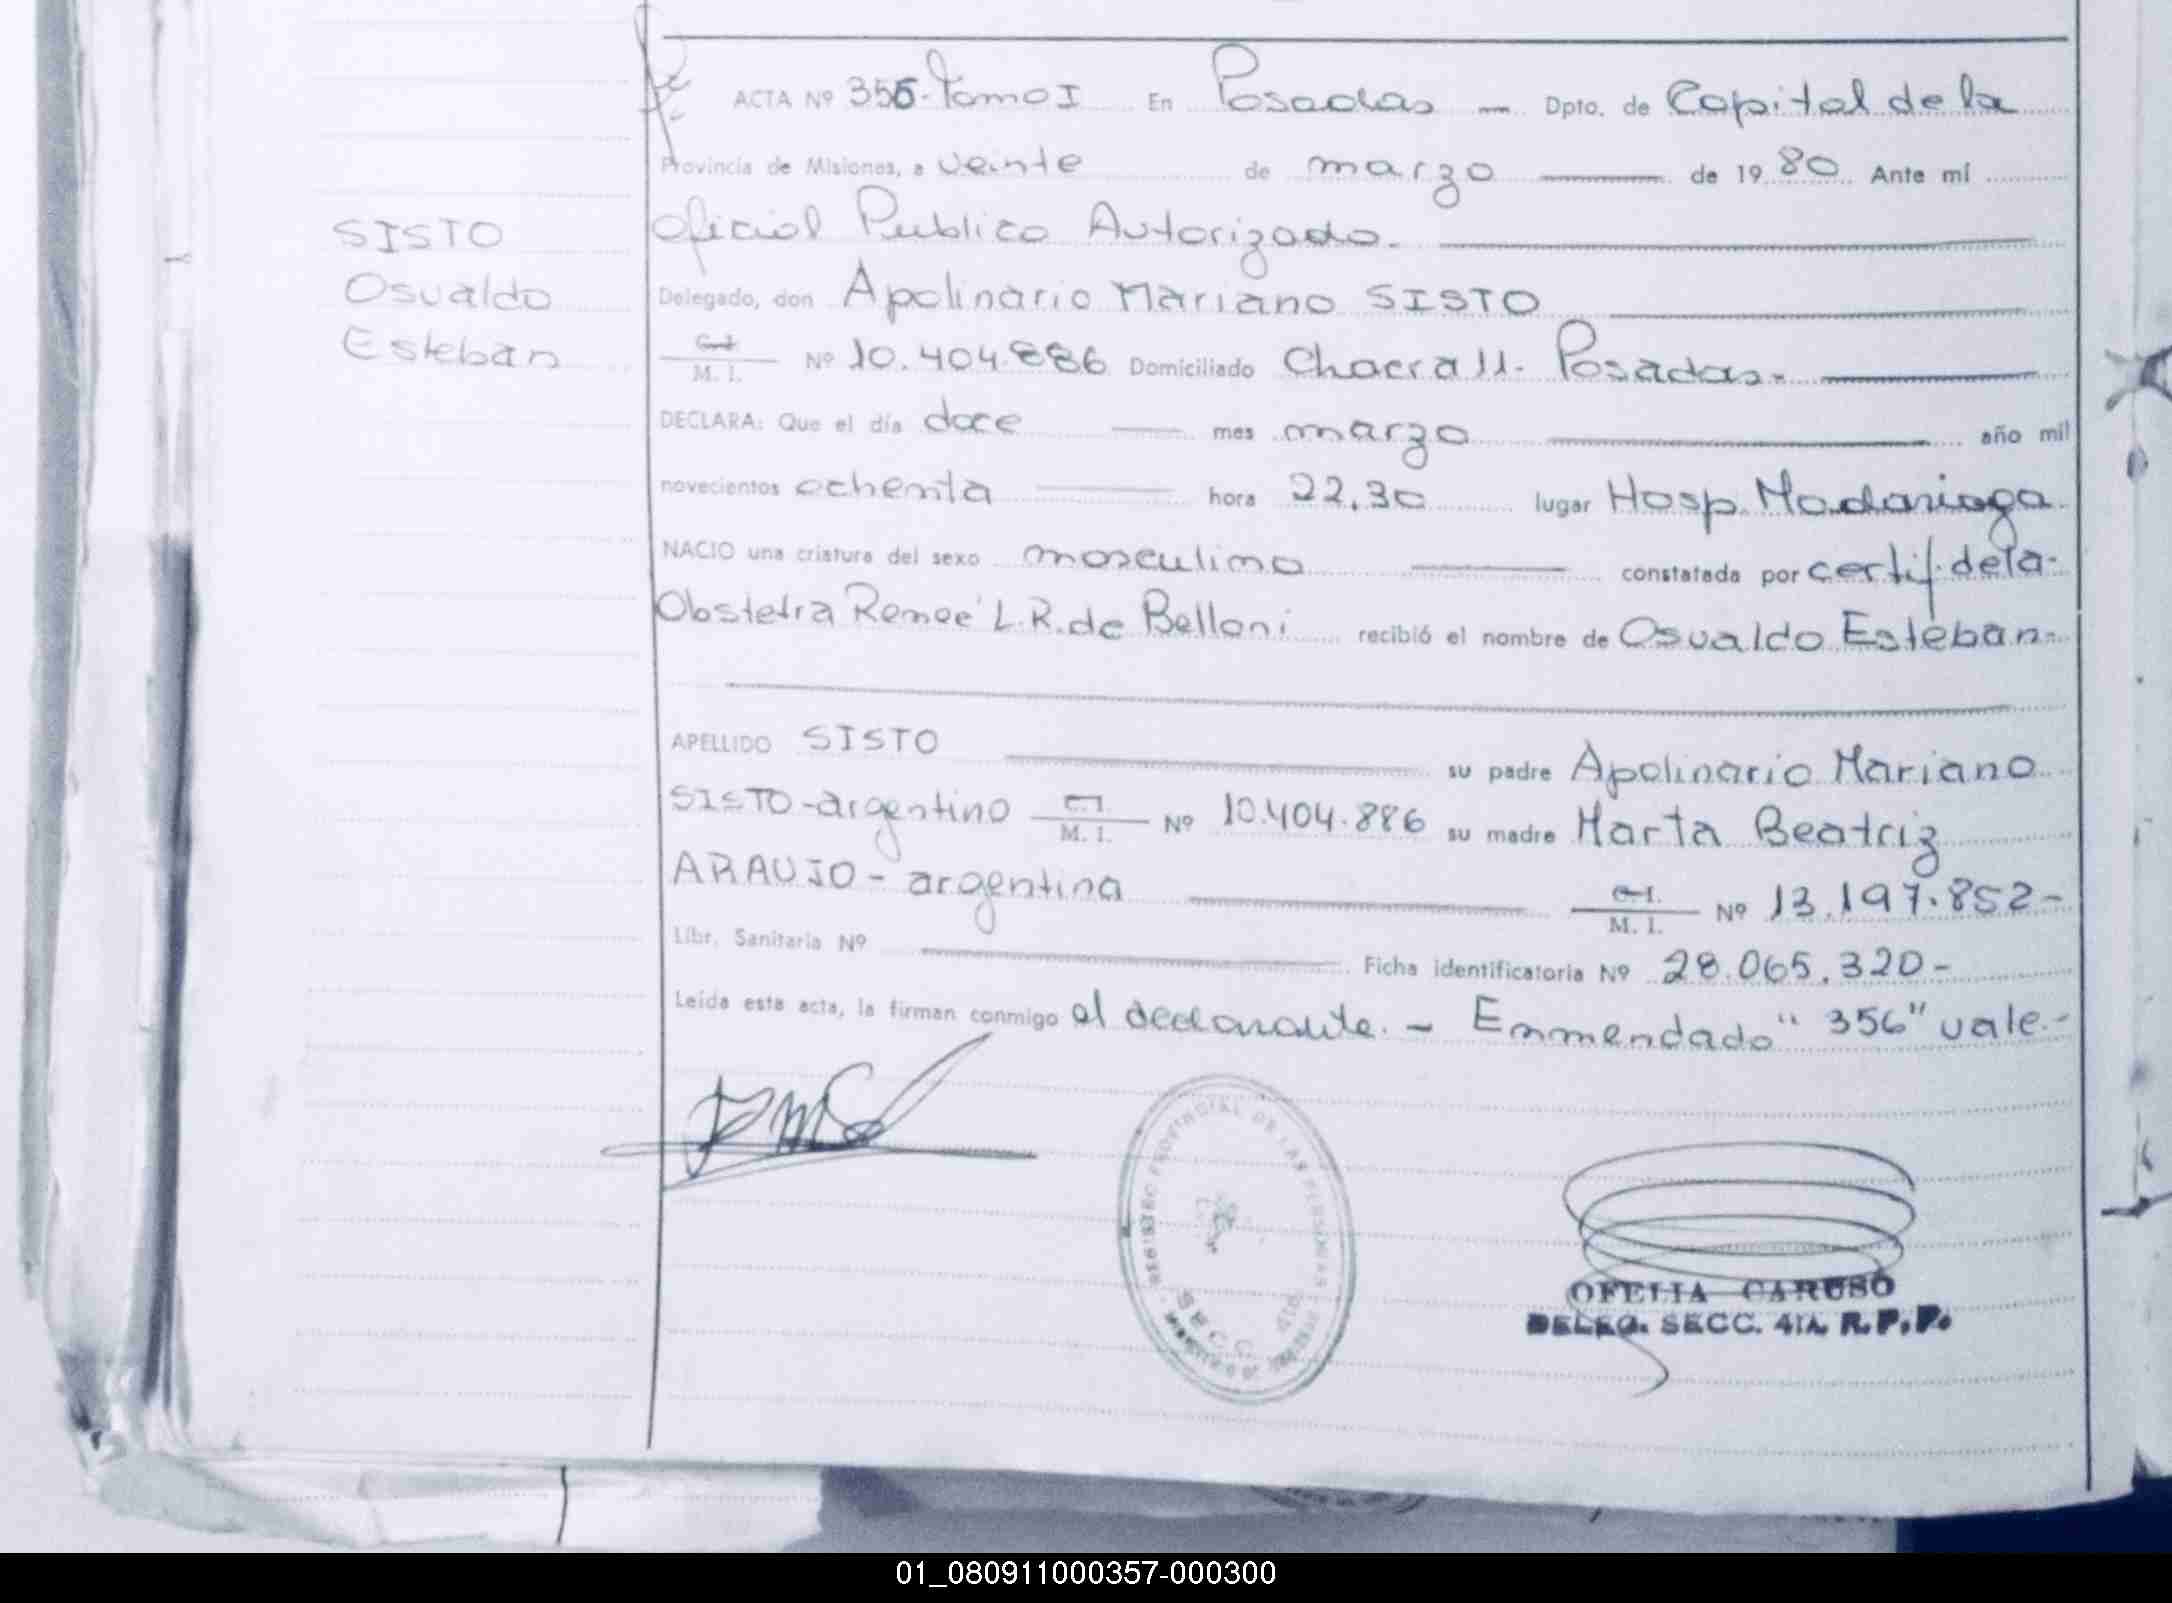 ACTA Nº 356-Tomo I En Posadas — Dpto. de Capital de la
Provincia de Misiones, a veinte de marzo — de 19 80 Ante mí
Oficial Publico Autorizado.
SISTO
Osvaldo
Esteban
Delegado, don Apolinario Mariano SISTO
C.I.
M. I. Nº 10.404.886 Domiciliado Chacra 11. Posadas.-
DECLARA: Que el día doce — mes marzo — año mil
novecientos ochenta — hora 22,30 lugar Hosp. Madariaga
NACIO una criatura del sexo masculino — constatada por certif. de la-
Obstetra Reneé L.R. de Belloni recibió el nombre de Osvaldo Esteban.-
APELLIDO SISTO — su padre Apolinario Mariano
SISTO-argentino C.I. M. I. Nº 10.404.886 su madre Marta Beatriz
ARAUJO - argentina — C.I. M. I. Nº 13.197.852-
Libr. Sanitaria Nº — Ficha identificatoria Nº 28.065.320-
Leída esta acta, la firman conmigo el declarante. - Enmendado "356" vale.-
REGISTRO PROVINCIAL DE LAS PERSONAS
SECC. 4ta
OFELIA CARUSO
DELEG. SECC. 4TA. R.P.P.
01_080911000357-000300